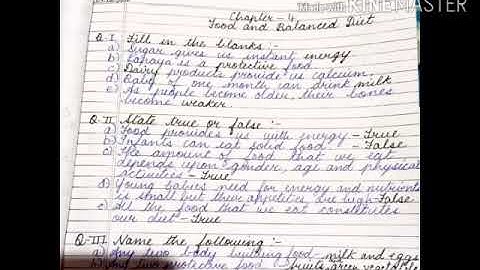 Made with KINEMASTER
Chapter - 4
Food and Balanced Diet
Q.I Fill in the blanks :-
a) Sugar gives us instant energy
b) Papaya is a protective food.
c) Dairy products provide us calcium.
d) Baby of one month can drink milk
e) As people become older, their bones
become weaker.
Q.II State true or false :-
a) Food provides us with energy - True
b) Infants can eat solid food. - False
c) The amount of food that we eat
depends upon gender, age and physical
activities - True
d) Young babies need for energy and nutrients
is small but their appetites are high - False
e) All the food that we eat constitutes
our diet - True
Q.III Name the following :-
a) Any two body building food - milk and eggs
b) Any two protective food - fruits, green vegetable